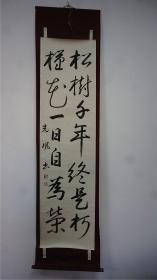 松樹千年終是朽
槿花一日自為榮